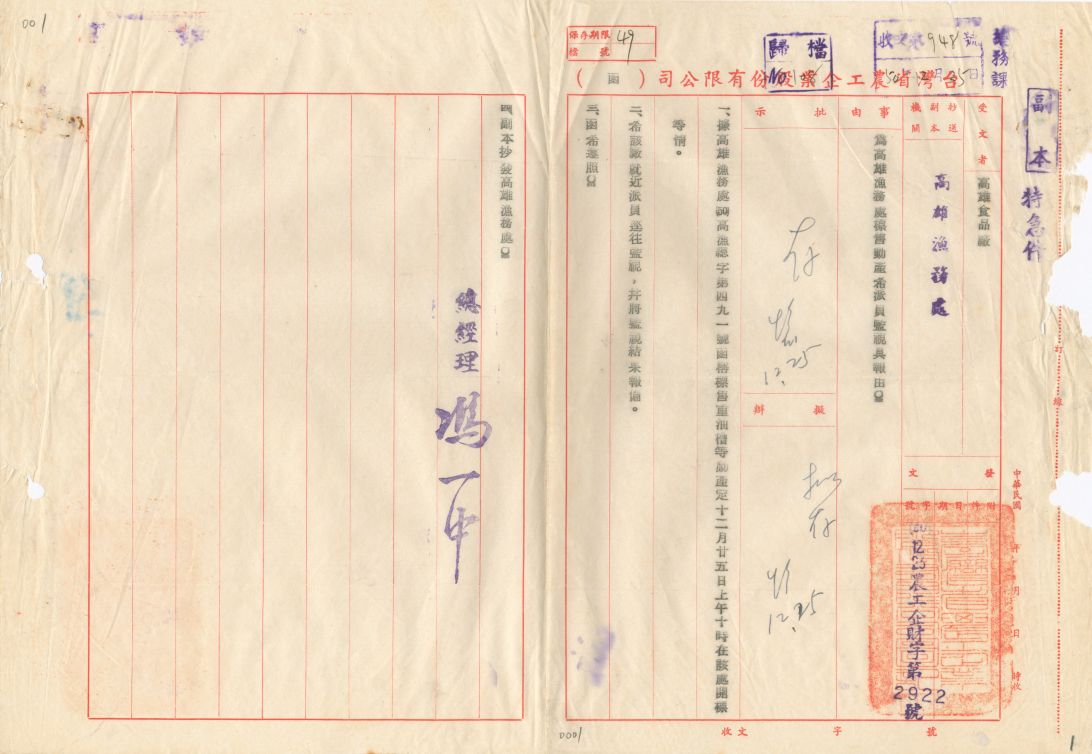 001
保存期限
檔號
49
歸檔
收文 948 號
業務課
台灣省農工企業股份有限公司（函）
副本
特急件
受文者
高雄食品廠
抄送副本機關
高雄漁務處
事由
為高雄漁務處標售動產希派員監視具報由
批示
存
12.25
擬辦
擬存
12.25
發文
附件
日期
字號
50 12 25
農工企財字第2922號
中華民國
時收
訂
線
一、據高雄漁務處高漁總字第四九一號函稱標售重油槽等動產定十二月廿五日上午十時在該處開標
等情。
二、希該廠就近派員逕往監視，并將監視結果報備。
三、函希遵照。
四、副本抄發高雄漁務處。
總經理 馮一申
收文 字 號
0001
1